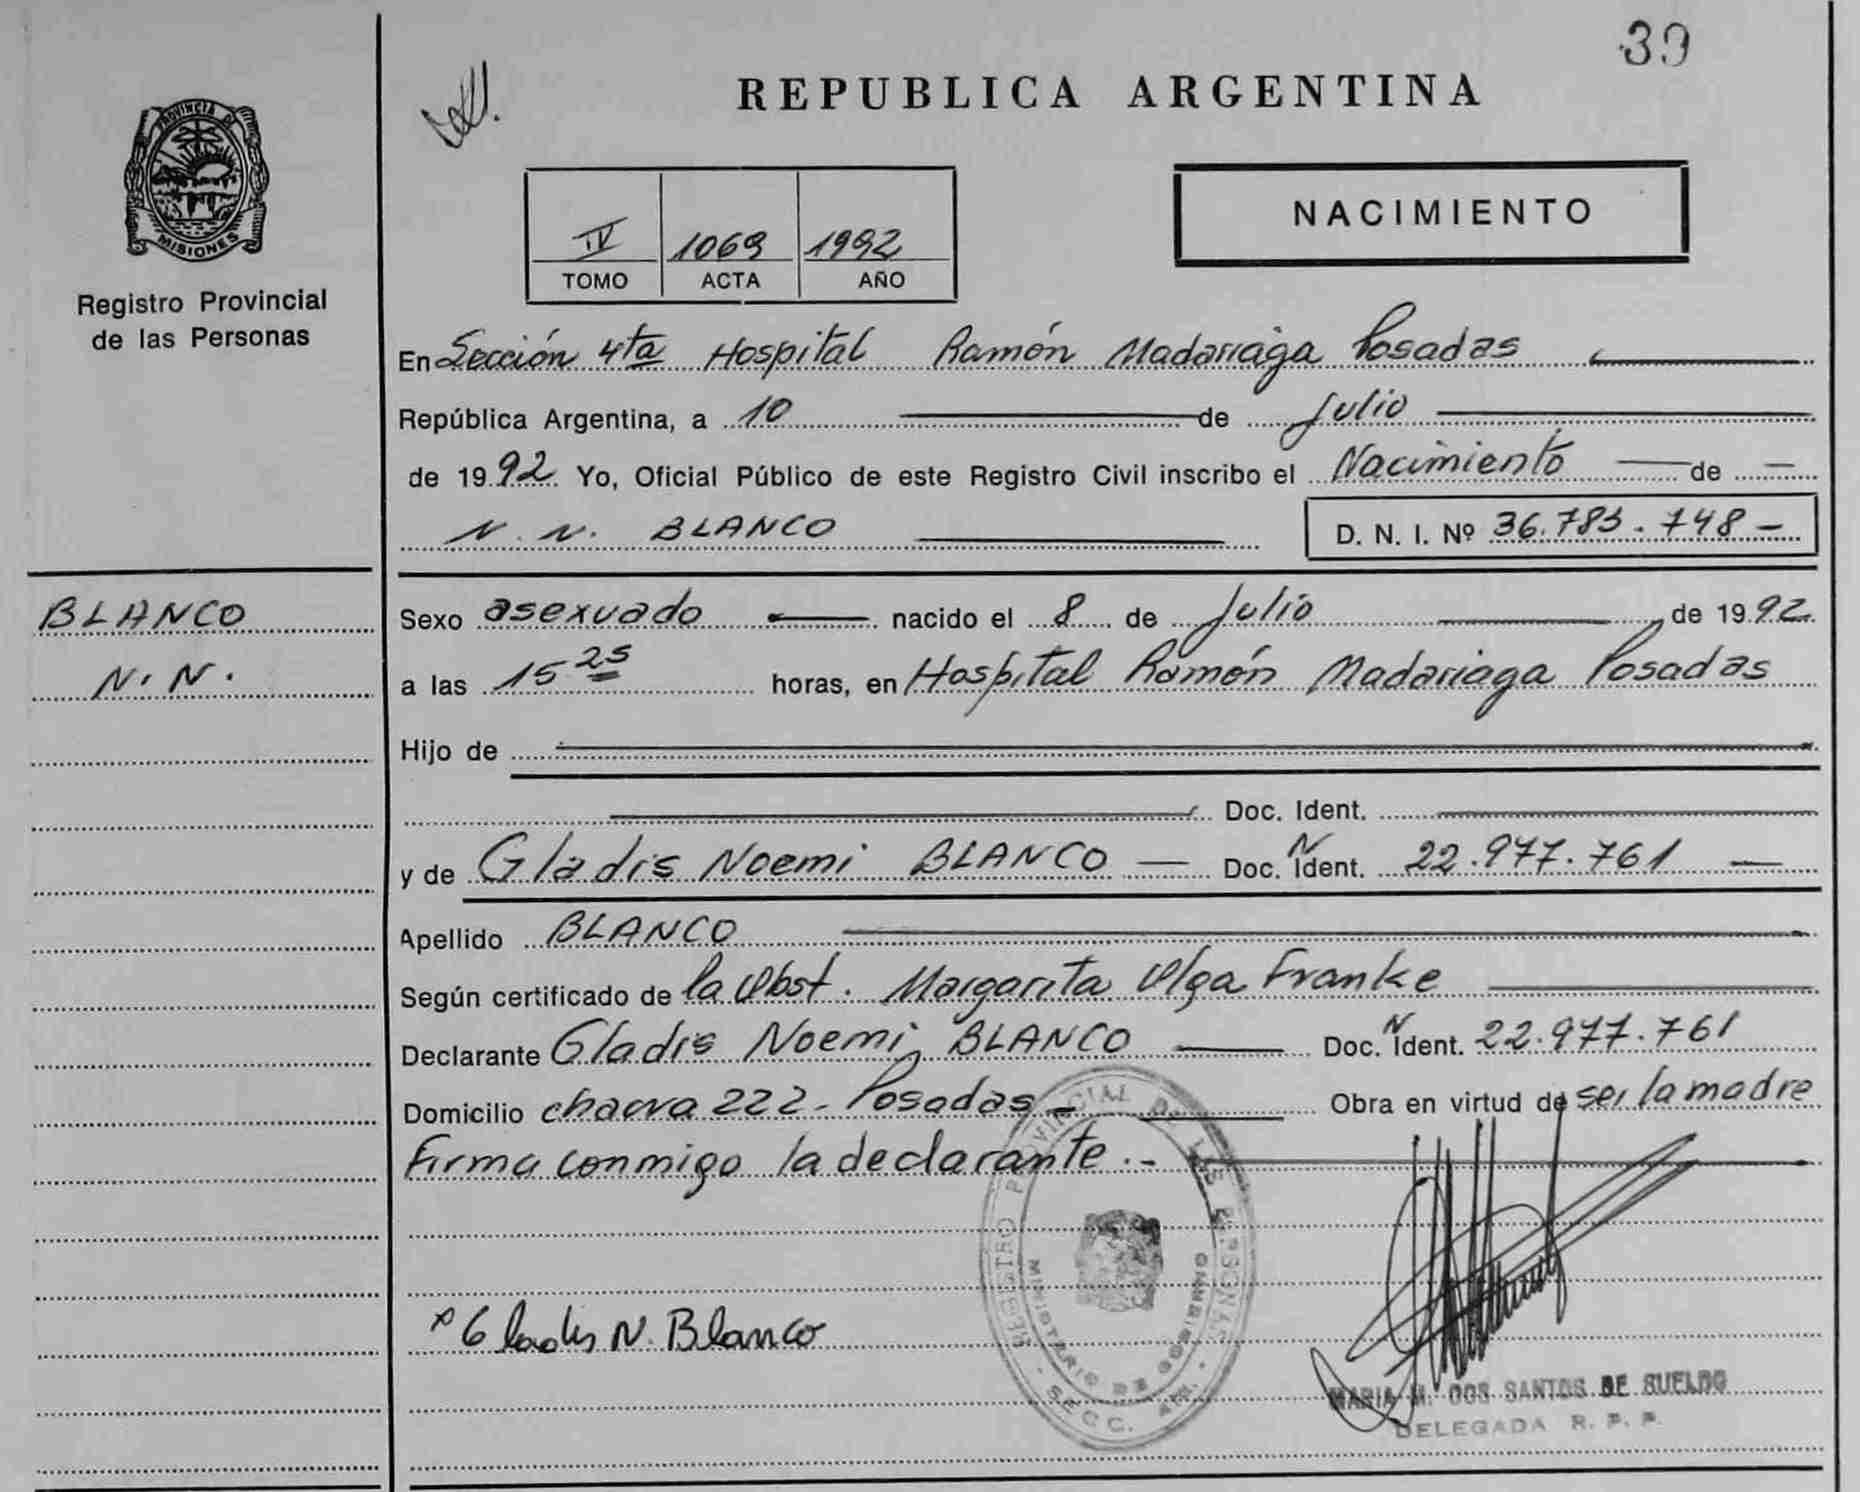 39
REPUBLICA ARGENTINA
PROVINCIA DE
MISIONES
Registro Provincial
de las Personas
NACIMIENTO
IV 1069 1992
TOMO ACTA AÑO
En Sección 4ta Hospital Ramón Madariaga Posadas
República Argentina, a 10 de Julio
de 1992 Yo, Oficial Público de este Registro Civil inscribo el Nacimiento de
N. N. BLANCO
D. N. I. Nº 36.783.748
BLANCO
N. N.
Sexo asexuado nacido el 8 de Julio de 1992
a las 15 25 horas, en Hospital Ramón Madariaga Posadas
Hijo de
Doc. Ident.
y de Gladis Noemi BLANCO Doc. N Ident. 22.977.761
Apellido BLANCO
Según certificado de la Obst. Margarita Olga Franke
Declarante Gladis Noemi BLANCO Doc. N Ident. 22.977.761
Domicilio chacra 222 - Posadas - Obra en virtud de ser la madre
Firma conmigo la declarante.-
REGISTRO PROVINCIAL DE LAS PERSONAS
MINISTERIO DE GOBIERNO
SECC. 4ta.
x Gladis N. Blanco
MARIA M. DOS SANTOS DE SUELDO
DELEGADA R. P. P.